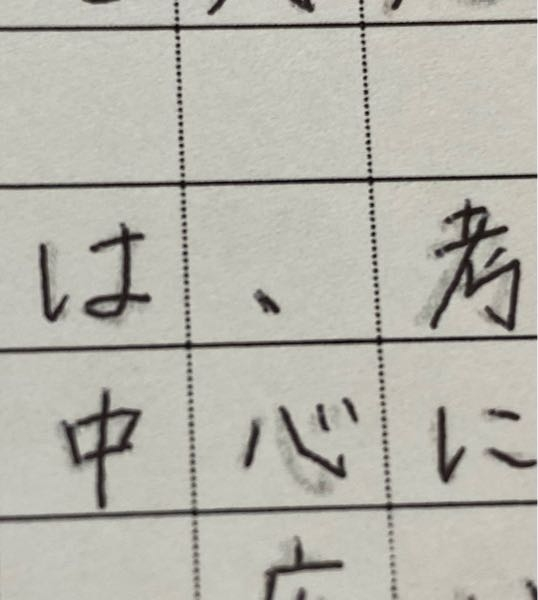 は、考
中心に